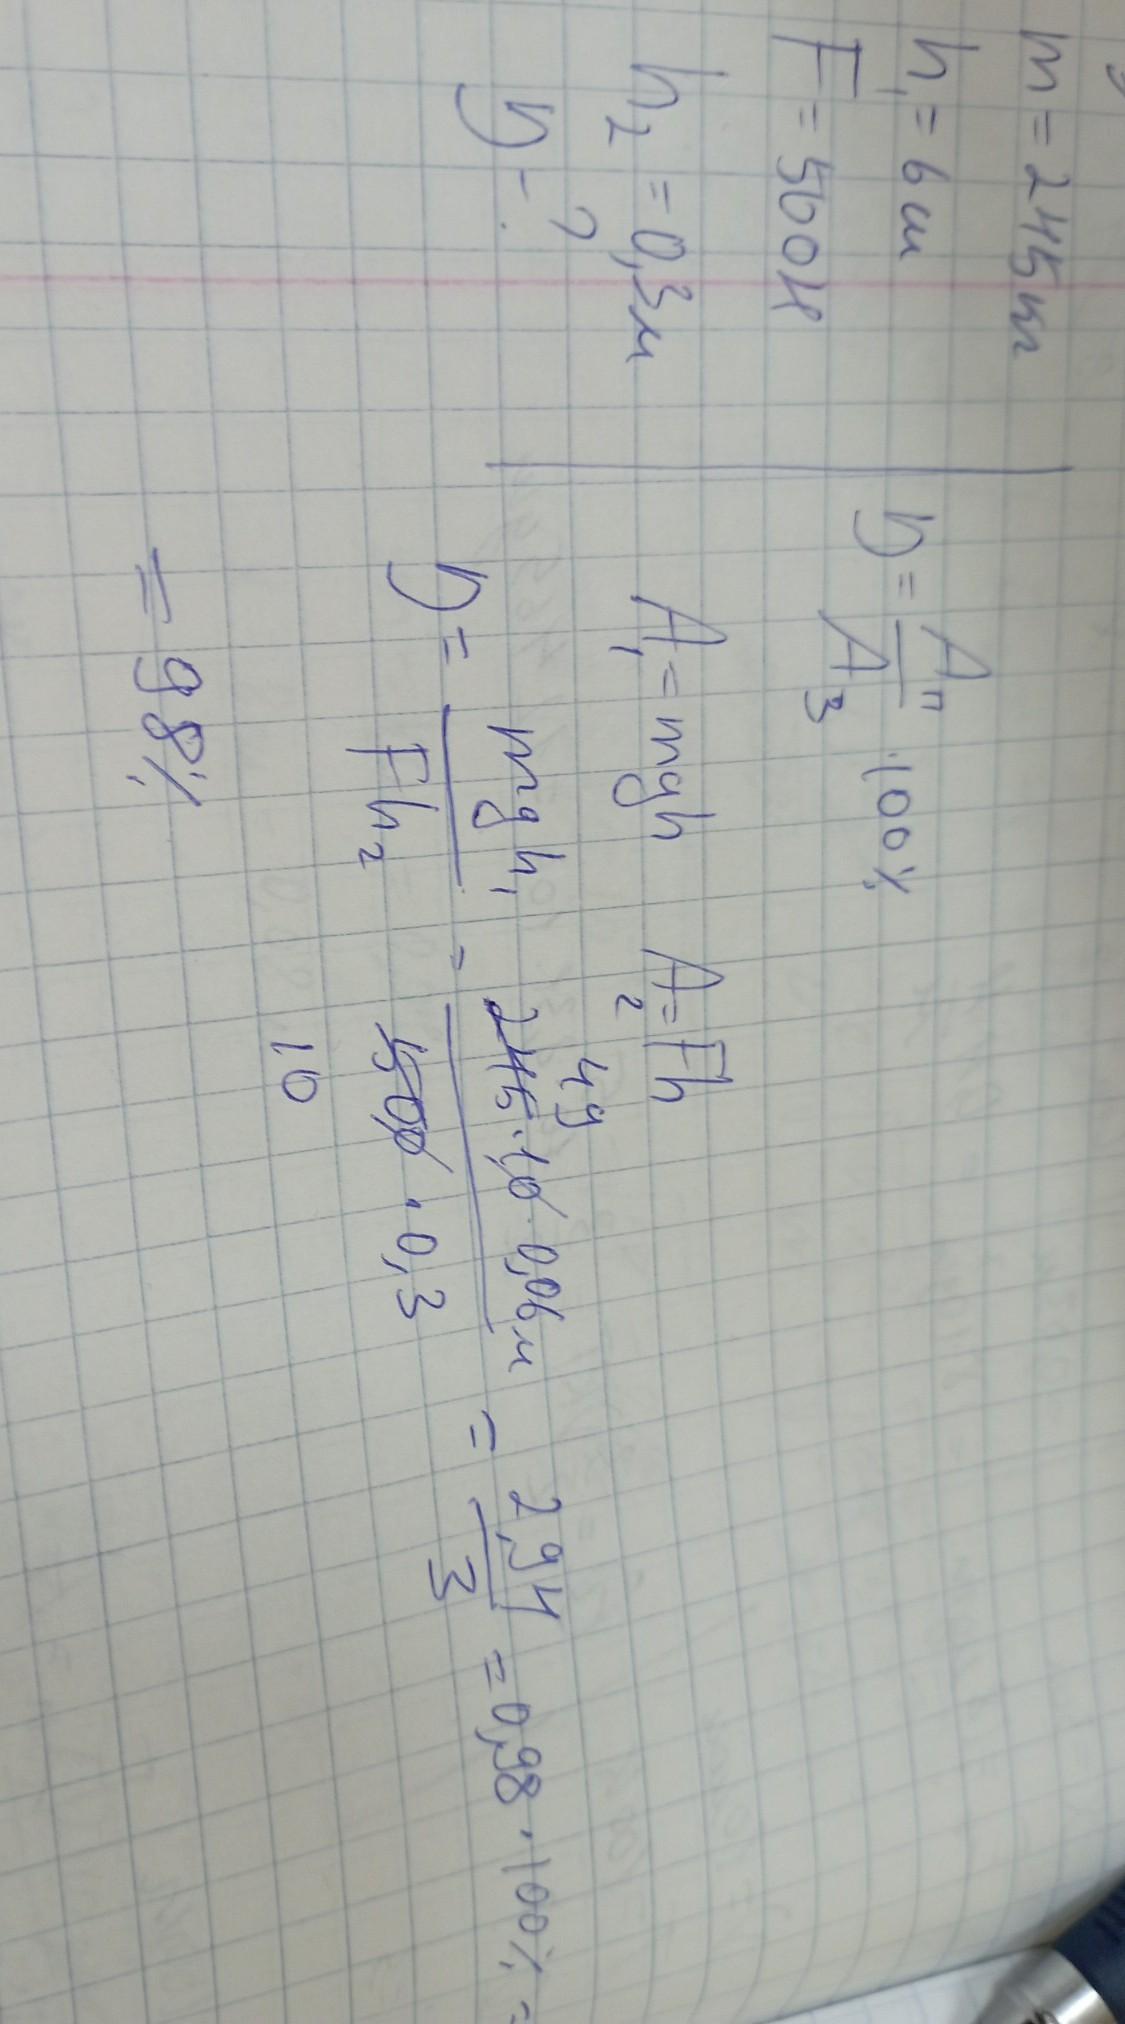 m = 245 кг
h₁ = 6 см
F = 500 Н
h₂ = 0,3 м
η - ?
η = Aп / Aз · 100%
A₁ = mgh A₂ = Fh
η = mgh₁ / Fh₂ = 245 · 10 · 0,06 м / 500 · 0,3 = 2,94 / 3 = 0,98 · 100% =
49
10
= 98%